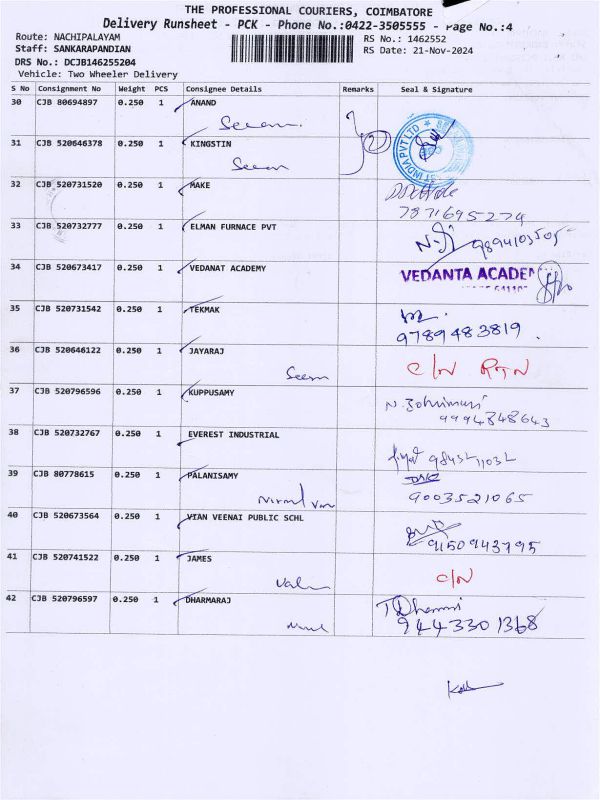 THE PROFESSIONAL COURIERS, COIMBATORE
Delivery Runsheet - PCK - Phone No.:0422-3505555 - Page No.:4
Route: NACHIPALAYAM RS No.: 1462552
Staff: SANKARAPANDIAN RS Date: 21-Nov-2024
DRS No.: DCJB146255204
Vehicle: Two Wheeler Delivery
S No Consignment No Weight PCS Consignee Details Remarks Seal & Signature
30 CJB 80694897 0.250 1 ANAND
31 CJB 520646378 0.250 1 KINGSTIN
2
INDIA PVT LTD
32 CJB 520731520 0.250 1 MAKE
7871695274
33 CJB 520732777 0.250 1 ELMAN FURNACE PVT
9894103505
34 CJB 520673417 0.250 1 VEDANAT ACADEMY
VEDANTA ACADEM
35 CJB 520731542 0.250 1 TEKMAK
9789483819
36 CJB 520646122 0.250 1 JAYARAJ
C/N RTN
37 CJB 520796596 0.250 1 KUPPUSAMY
9994848643
38 CJB 520732767 0.250 1 EVEREST INDUSTRIAL
39 CJB 80778615 0.250 1 PALANISAMY
9003521065
40 CJB 520673564 0.250 1 VIAN VEENAI PUBLIC SCHL
9150943795
41 CJB 520741522 0.250 1 JAMES
C/N
42 CJB 520796597 0.250 1 DHARMARAJ
9443301368